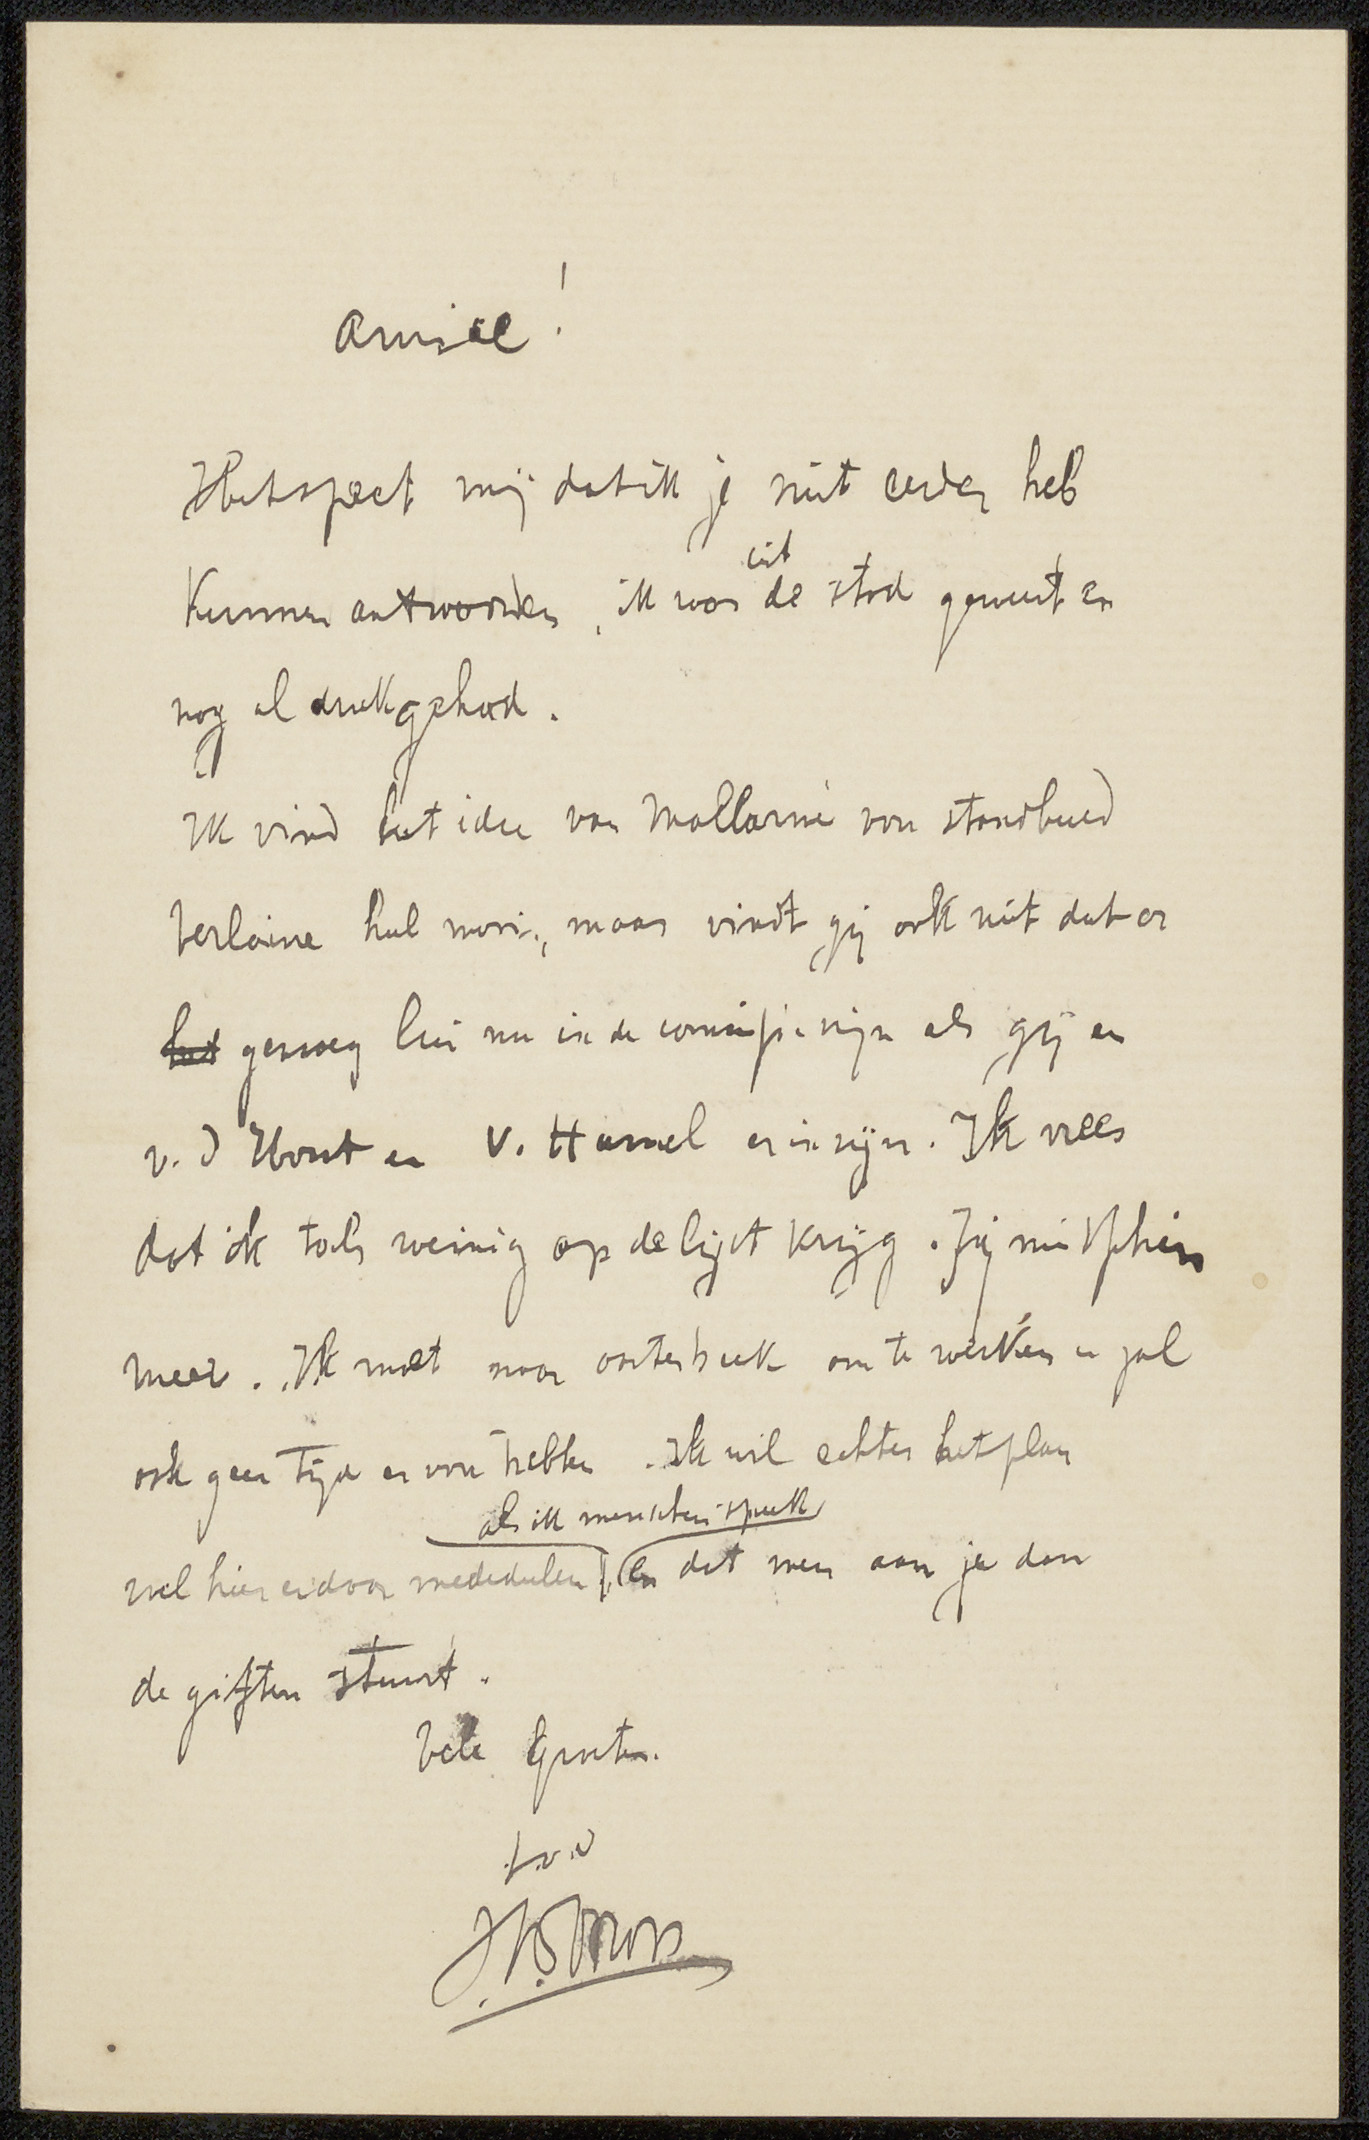 Amice!
Het speet mij dat ik je niet eerder heb
kunnen antwoorden, ik was uit de stad geweest en
nog al druk gehad.
Ik vind het idee van Mallarmé voor standbeeld
Verlaine heel mooi, maar vindt gij ook niet dat er
genoeg hier nu in de comissie zijn als gij en
v. d Hout en v. Hamel er in zijn. Ik vrees
dat ik toch weinig op de lijst krijg. Jij misschien
meer. Ik moet naar oosterbeek om te werken en zal
ook geen tijd er voor hebben. Ik wil echter het plan
als ik menschen spreek
wel hier en daar mededeelen, en dat men aan je dan
de giften stuurt.
Vele Groeten.
t.a.v
J.Th. Toorop